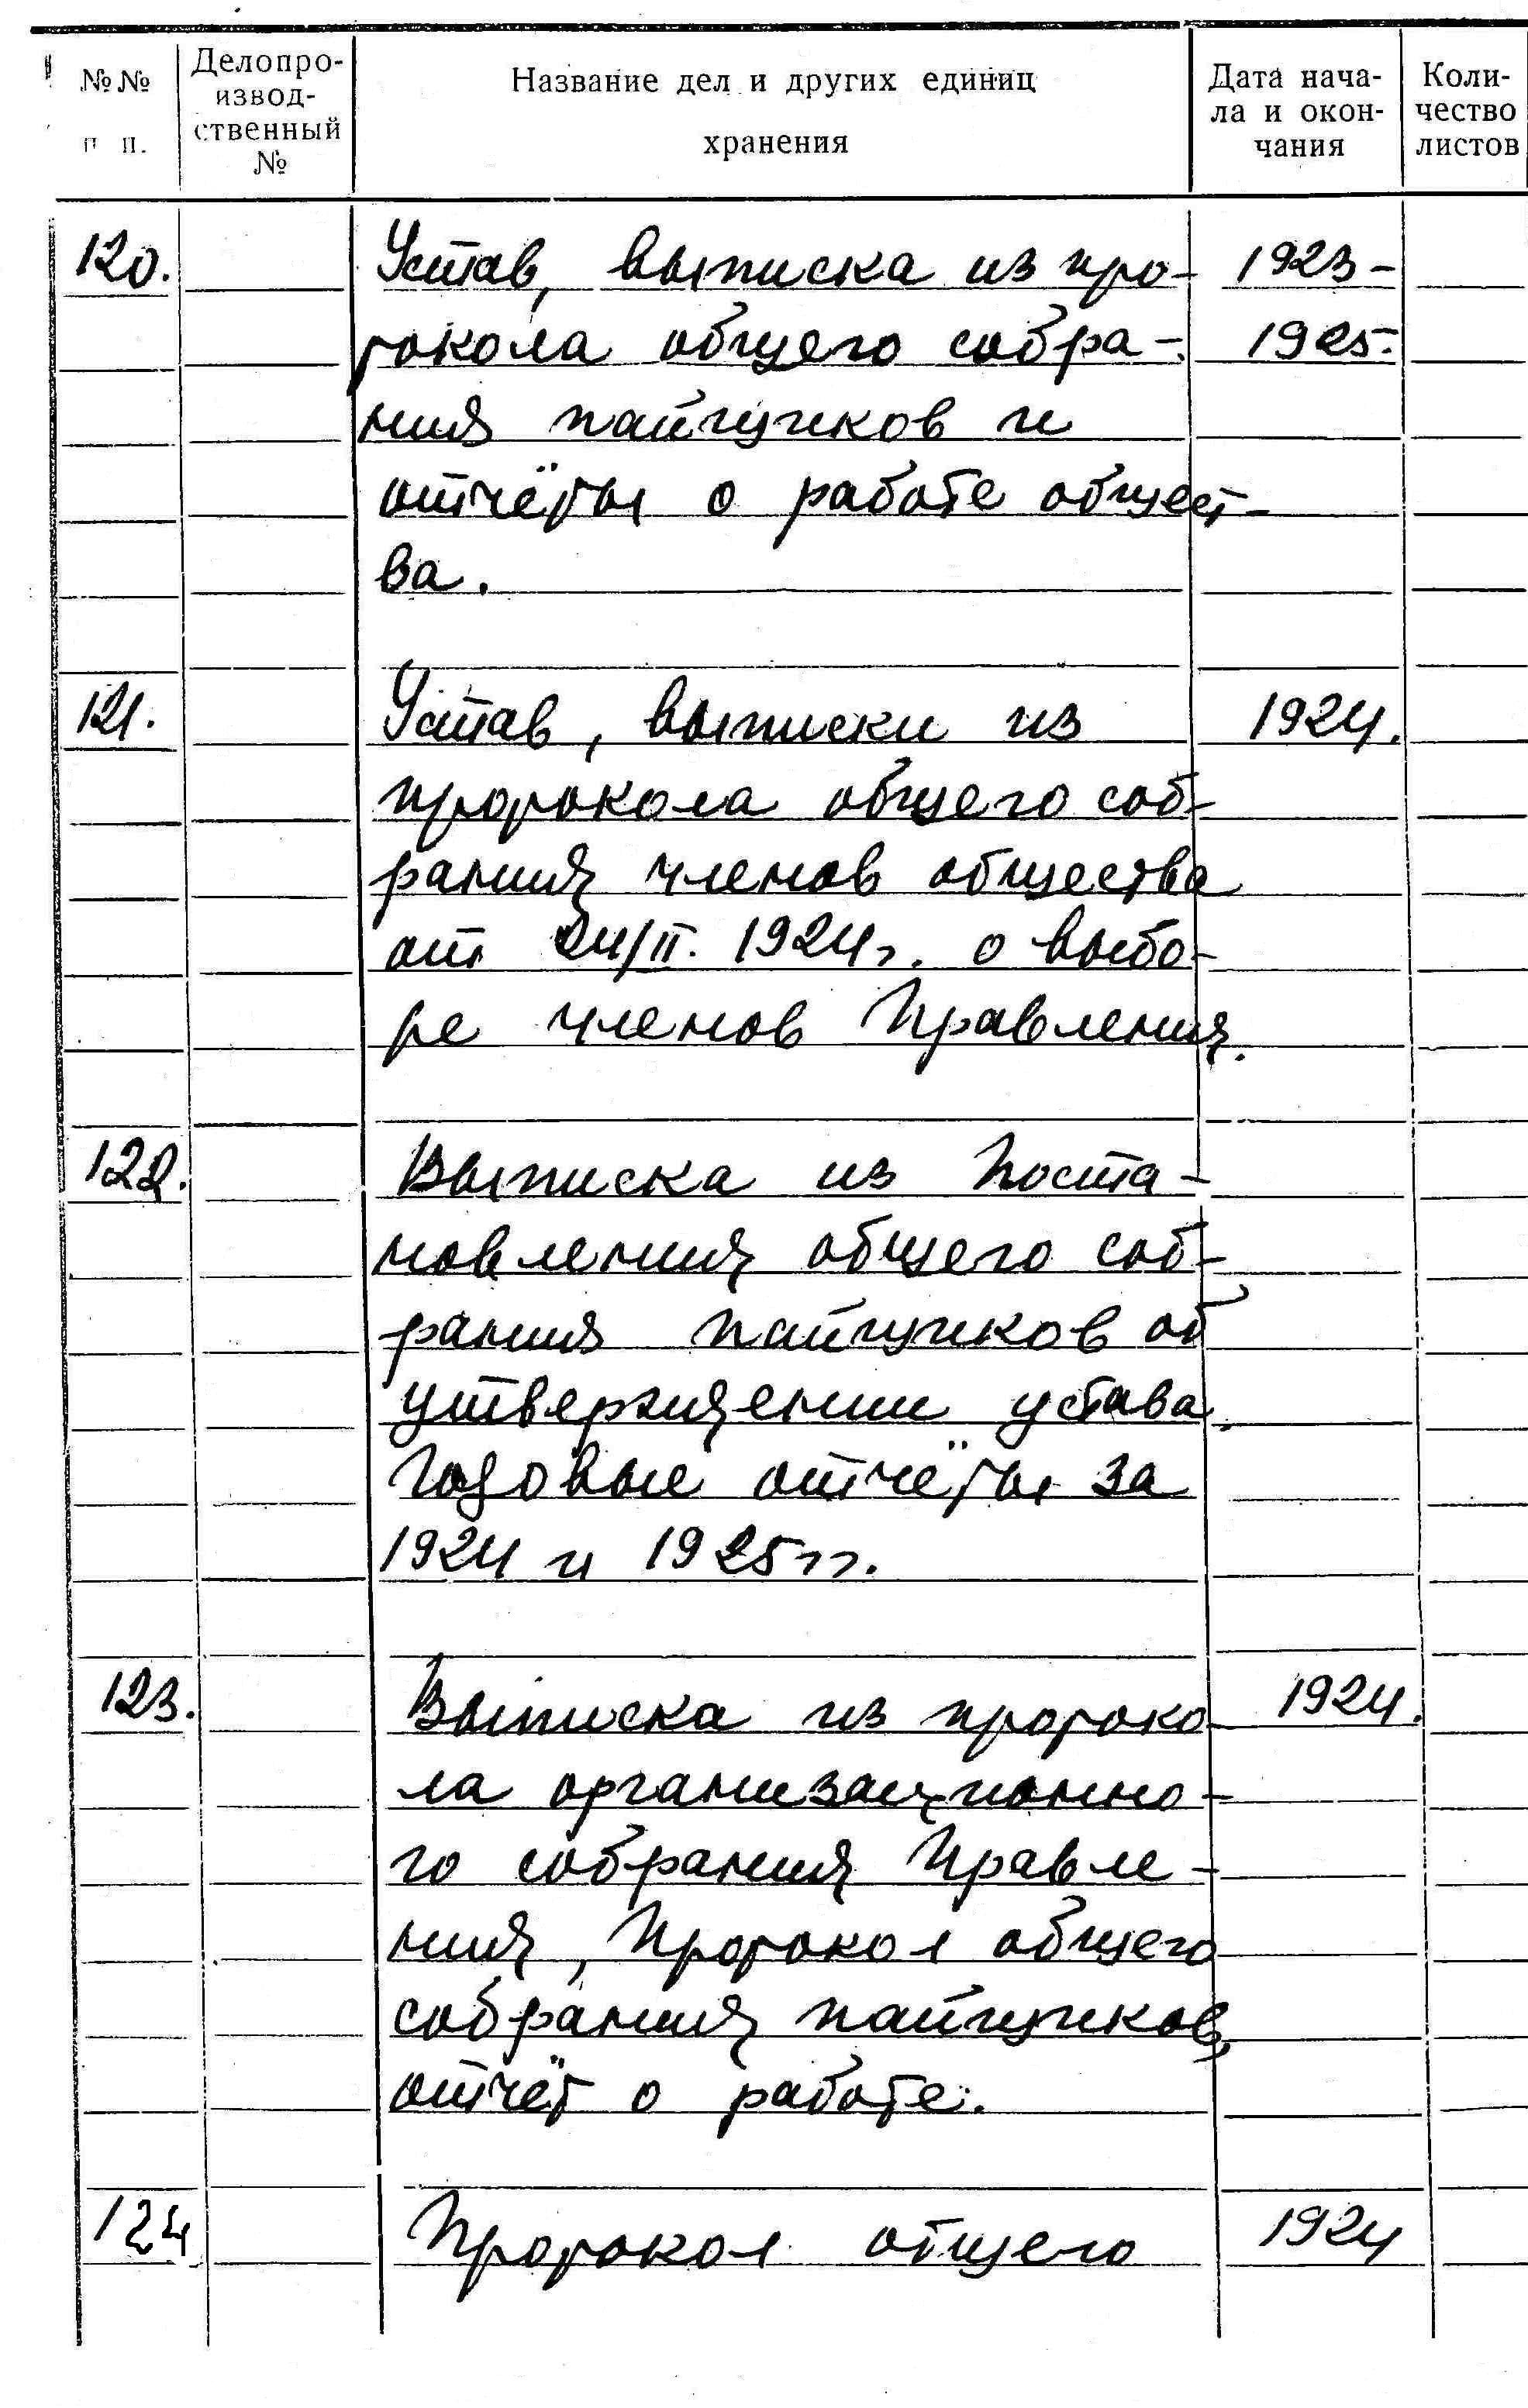 №№ п п. Делопро-извод-ственный № Название дел и других единиц хранения Дата нача-ла и окон-чания Коли-чество листов
120. Устав, выписка из про- 1923 -
токола общего собра- 1925.
ния пайщиков и
отчёты о работе общест-
ва.
121. Устав, выписки из 1924.
протокола общего соб-
рания членов общества
от 24/II. 1924г. о выбо-
ре членов Правления.
122. Выписка из Поста-
новления общего соб-
рания пайщиков об
утверждении устава.
Годовые отчёты за
1924 и 1925гг.
123. Выписка из протоко- 1924.
ла организационно-
го собрания Правле-
ния, Протокол общего
собрания пайщиков,
отчёт о работе.
124 Протокол общего 1924